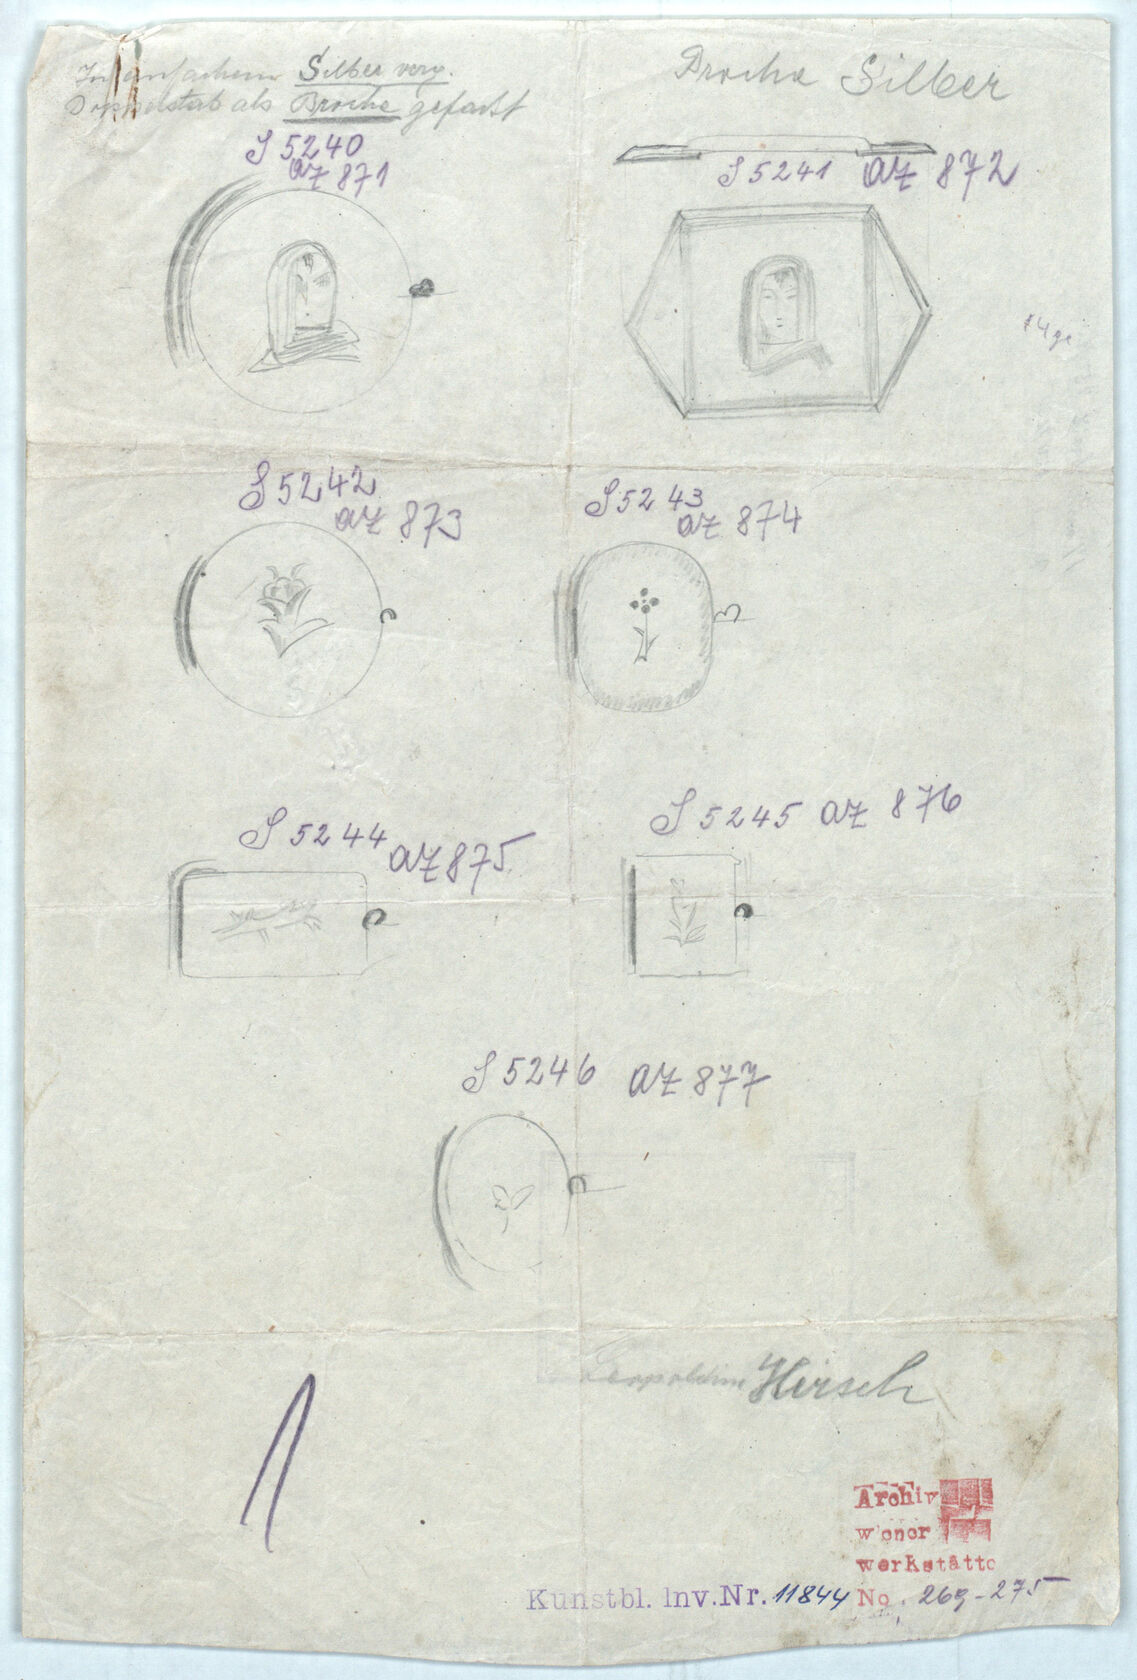 In einfachem Silber verg.
Doppelstab als Broche gefasst
Broche Silber
S 5240
az 871
S 5241 az 872
S 5242
az 873
S 5243
az 874
S 5244
az 875
S 5245 az 876
S 5246 az 877
Leopoldine Hirsch
1
Archiv
wener
werkstätte
Kunstbl. Inv.Nr. 11844 No. 269-275